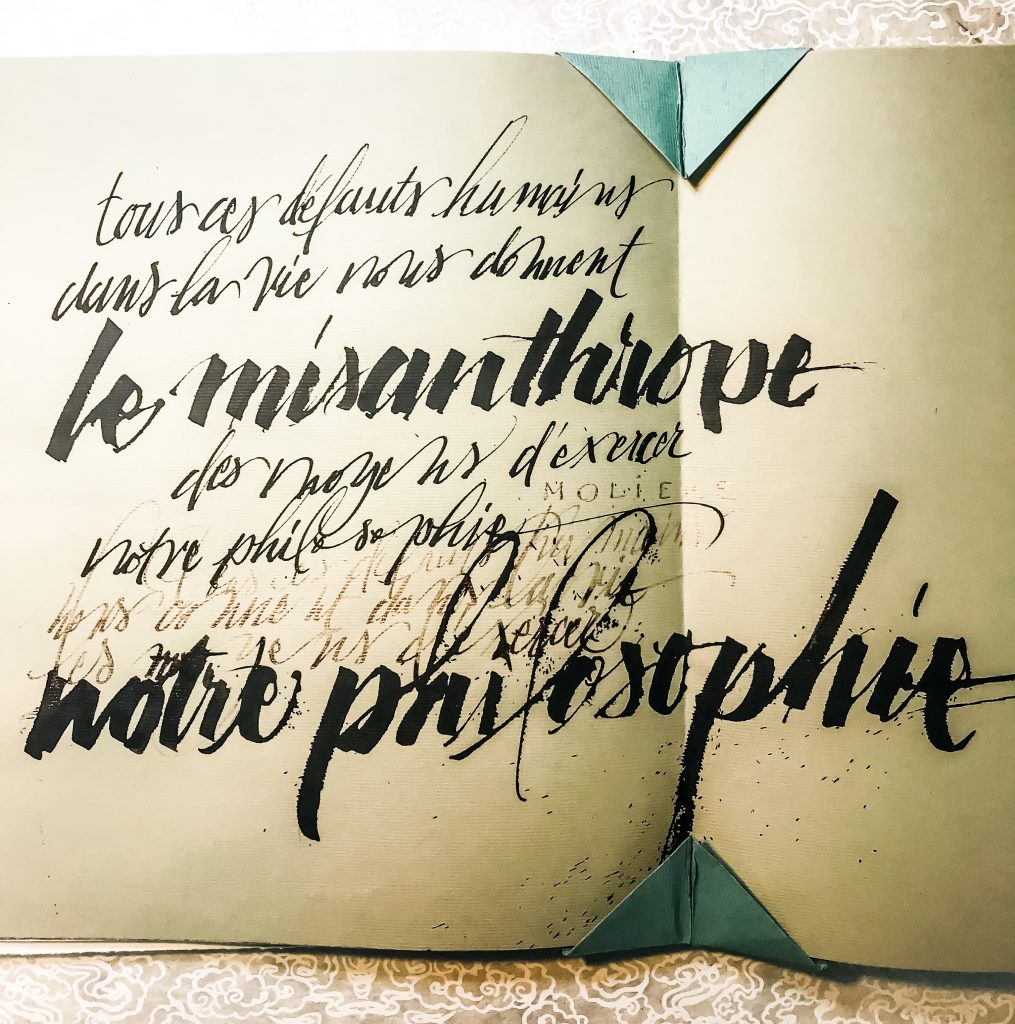 tous ces défauts humains
dans la vie nous donnent
le misanthrope
des moyens d'exercer
MOLIERE
notre philosophie
dans la vie
des moyens d'exercer
notre philosophie